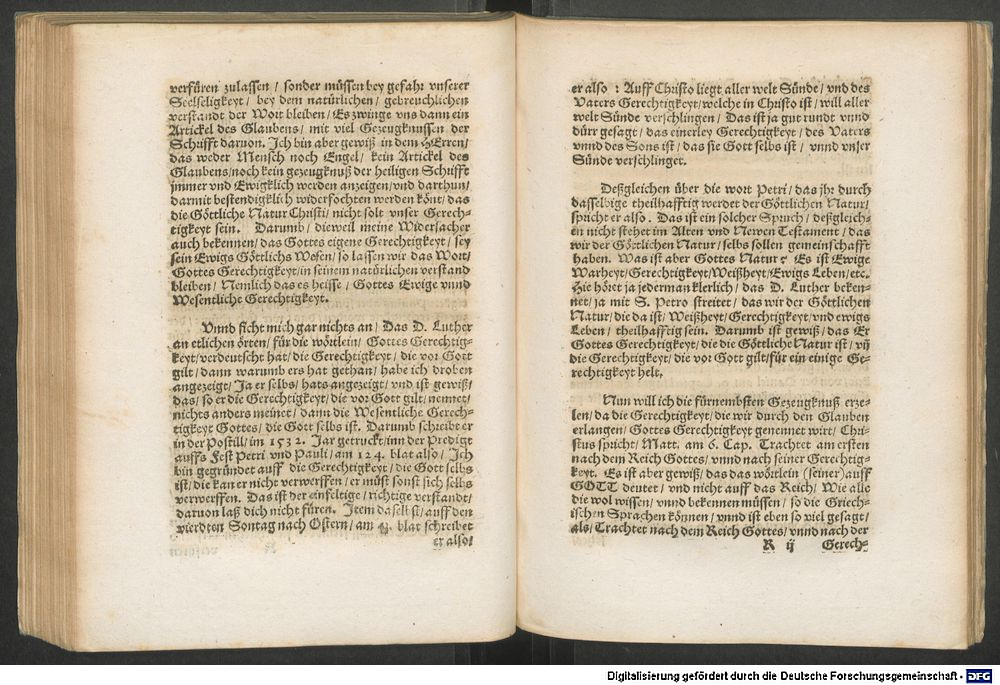 verfüren zulassen / sonder müssen bey gefahr vnserer
Seelseligkeyt / bey dem natürlichen / gebreuchlichen
verstandt der Wort bleiben / Es zwinge vns dann ein
Artickel des Glaubens / mit viel Gezeugknussen der
Schrifft daruon. Ich bin aber gewiß in dem HErren /
das weder Mensch noch Engel / kein Artickel des
Glaubens / noch kein gezeugknuß der heiligen Schrifft
jmmer vnd Ewigklich werden anzeigen / vnd darthun /
darmit bestendigklich widerfochten werden könt / das
die Göttliche Natur Christi / nicht solt vnser Gerech-
tigkeyt sein. Darumb / dieweil meine Widersacher
auch bekennen / das Gottes eigene Gerechtigkeyt / sey
sein Ewigs Göttlichs Wesen / so lassen wir das Wort /
Gottes Gerechtigkeyt / in seinem natürlichen verstand
bleiben / Nemlich das es heisse / Gottes Ewige vnnd
Wesentliche Gerechtigkeyt.
Vnnd ficht mich gar nichts an / Das D. Luther
an etlichen örten / für die wörtlein / Gottes Gerechtig-
keyt / verdeutscht hat / die Gerechtigkeyt / die vor Gott
gilt / dann warumb ers hat gethan / habe ich droben
angezeigt / Ja er selbs / hats angezeigt / vnd ist gewiß /
das / so er die Gerechtigkeyt / die vor Gott gilt / nennet /
nichts anders meinet / dann die Wesentliche Gerech-
tigkeyt Gottes / die Gott selbs ist. Darumb schreibt er
in der Postill / im 1532. Jar getruckt / inn der Predigt
auffs Fest Petri vnd Pauli / am 124. blat also / Ich
bin gegründet auff die Gerechtigkeyt / die Gott selbs
ist / die kan er nicht verwerffen / er müst sonst sich selbs
verwerffen. Das ist der einfeltige / richtige verstandt /
daruon laß dich nicht füren. Item daselbst / auff den
vierdten Sontag nach Ostern / am blat schreibet
er also:
er also : Auff Christo liegt aller welt Sünde / vnd des
Vaters Gerechtigkeyt / welche in Christo ist / will aller
welt Sünde verschlingen / Das ist ja gut rundt vnnd
dürr gesagt / das einerley Gerechtigkeyt / des Vaters
vnnd des Sons ist / das sie Gott selbs ist / vnnd vnser
Sünde verschlinget.
Deßgleichen über die wort Petri / das jhr durch
dasselbige theilhafftig werdet der Göttlichen Natur /
spricht er also. Das ist ein solcher Spruch / deßgleich-
en nicht stehet im Alten vnd Newen Testament / das
wir der Göttlichen Natur / selbs sollen gemeinschafft
haben. Was ist aber Gottes Natur? Es ist Ewige
Warheyt / Gerechtigkeyt / Weißheyt / Ewigs Leben / etc.
Hie höret ja jederman klerlich / das D. Luther beken-
net / ja mit S. Petro streitet / das wir der Göttlichen
Natur / die da ist / Weißheyt / Gerechtigkeyt / vnd ewigs
Leben / theilhafftig sein. Darumb ist gewiß / das Er
Gottes Gerechtigkeyt / die die Göttliche Natur ist / vñ
die Gerechtigkeyt / die vor Gott gilt / für ein einige Ge-
rechtigkeyt helt.
Nun will ich die fürnembsten Gezeugknuß erze-
len / da die Gerechtigkeyt / die wir durch den Glauben
erlangen / Gottes Gerechtigkeyt genennet wirt / Chri-
stus spricht / Matt. am 6. Cap. Trachtet am ersten
nach dem Reich Gottes / vnnd nach seiner Gerechtig-
keyt. Es ist aber gewiß / das das wörtlein (seiner) auff
GOTT deutet / vnd nicht auff das Reich / Wie alle
die wol wissen / vnnd bekennen müssen / so die Griech-
ischen Sprachen können / vnnd ist eben so viel gesagt /
als / Trachtet nach dem Reich Gottes / vnnd nach der
R ij Gerech-
Digitalisierung gefördert durch die Deutsche Forschungsgemeinschaft - DFG